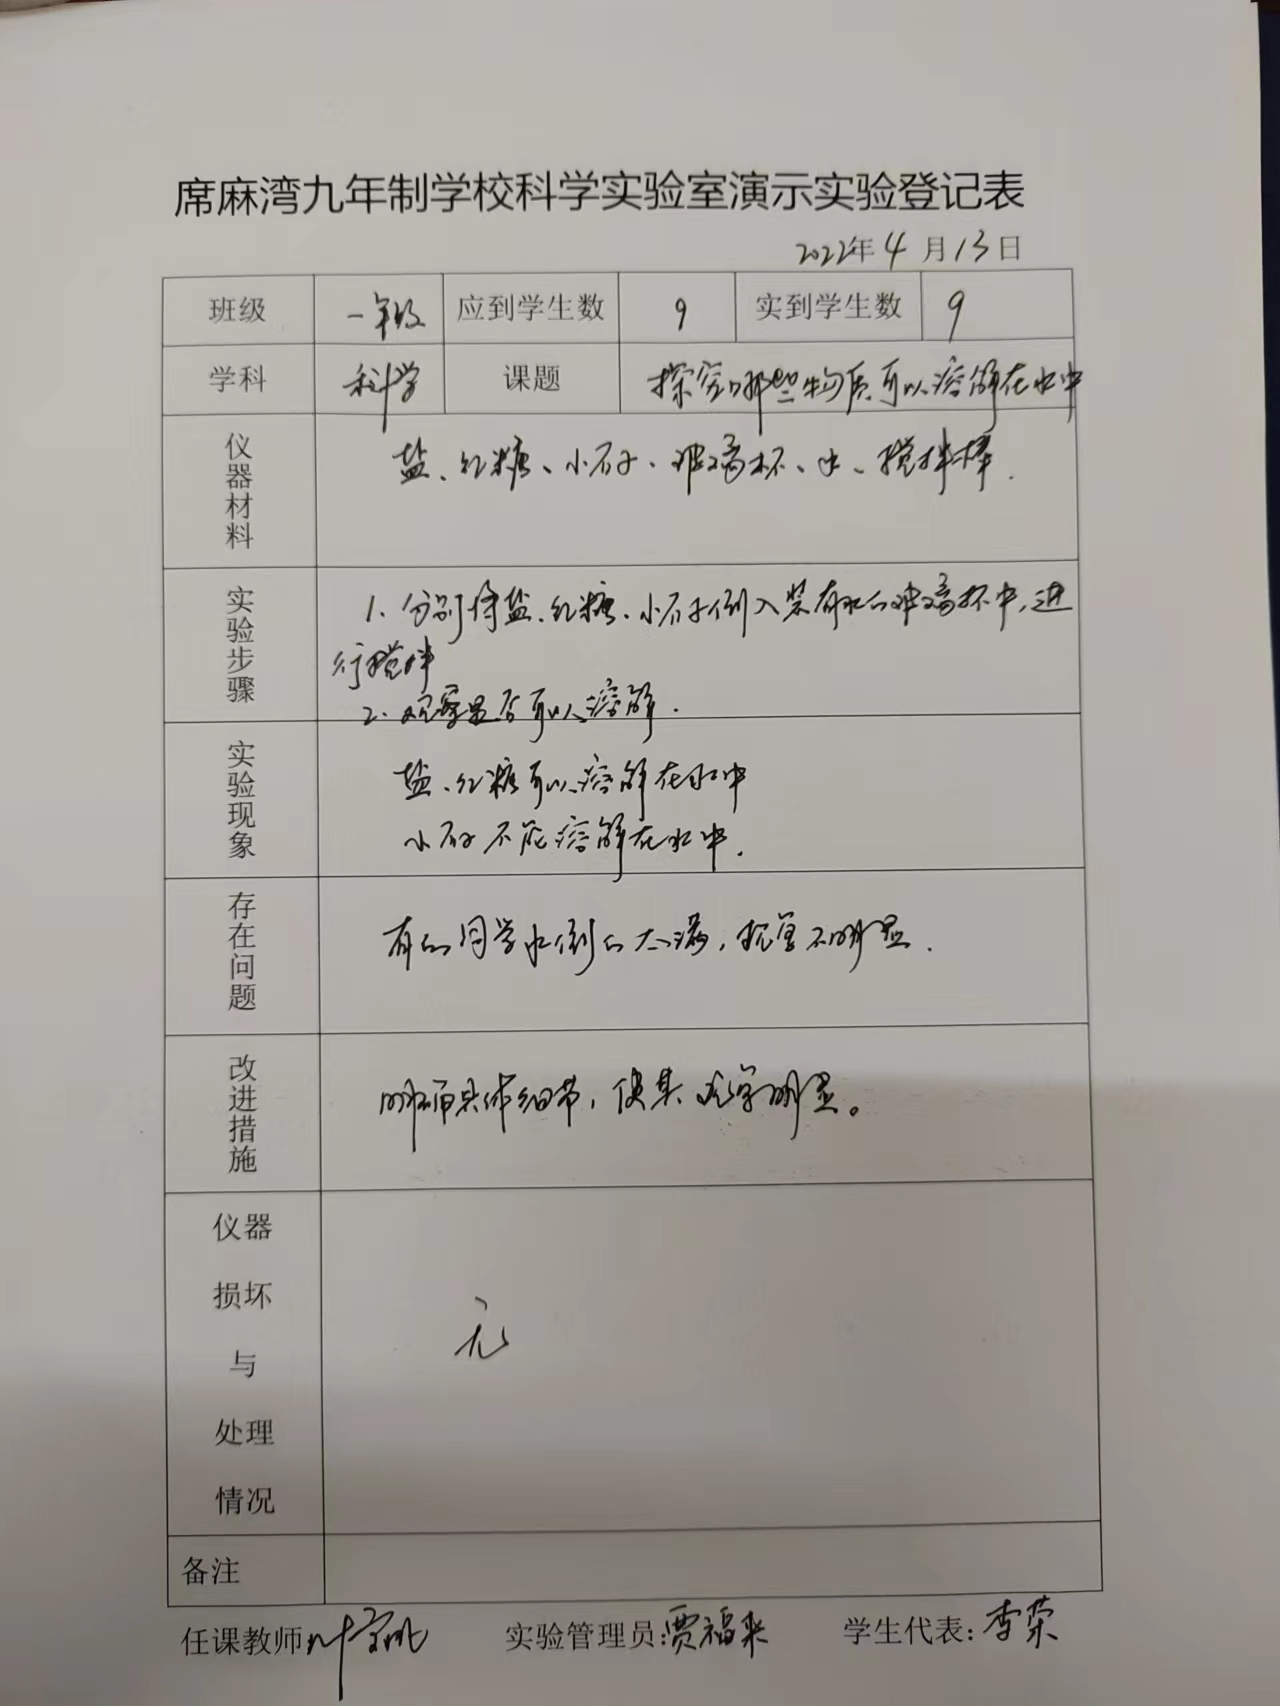 席麻湾九年制学校科学实验室演示实验登记表
2022年4月13日
班级 一年级 应到学生数 9 实到学生数 9
学科 科学 课题 探究哪些物质可以溶解在水中
仪器材料 盐、红糖、小石子、玻璃杯、水、搅拌棒.
实验步骤 1. 分别将盐、红糖、小石子倒入装有水的玻璃杯中,进
行搅拌
2. 观察是否可以溶解.
实验现象 盐、红糖可以溶解在水中
小石子不能溶解在水中.
存在问题 有的同学水倒的太满,现象不明显.
改进措施 明确具体细节,使其现象明显。
仪器
损坏
与
处理
情况
无
备注
任课教师: 叶 实验管理员:贾福来 学生代表:李荣